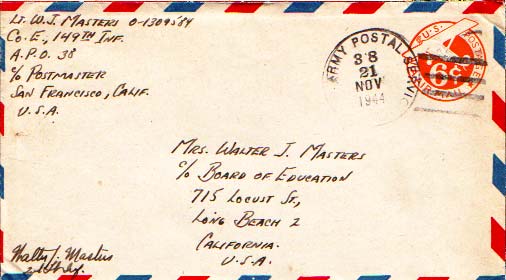 Lt. W. J. Masters O-1309584
Co. E., 149TH Inf.
A.P.O. 38
c/o Postmaster
San Francisco, Calif.
U.S.A.
ARMY POSTAL SERVICE
38
21
NOV
1944
U.S. POSTAGE
6¢
AIR MAIL
Mrs. Walter J. Masters
c/o Board of Education
715 Locust St,
Long Beach 2
California.
U.S.A.
Walter J. Masters